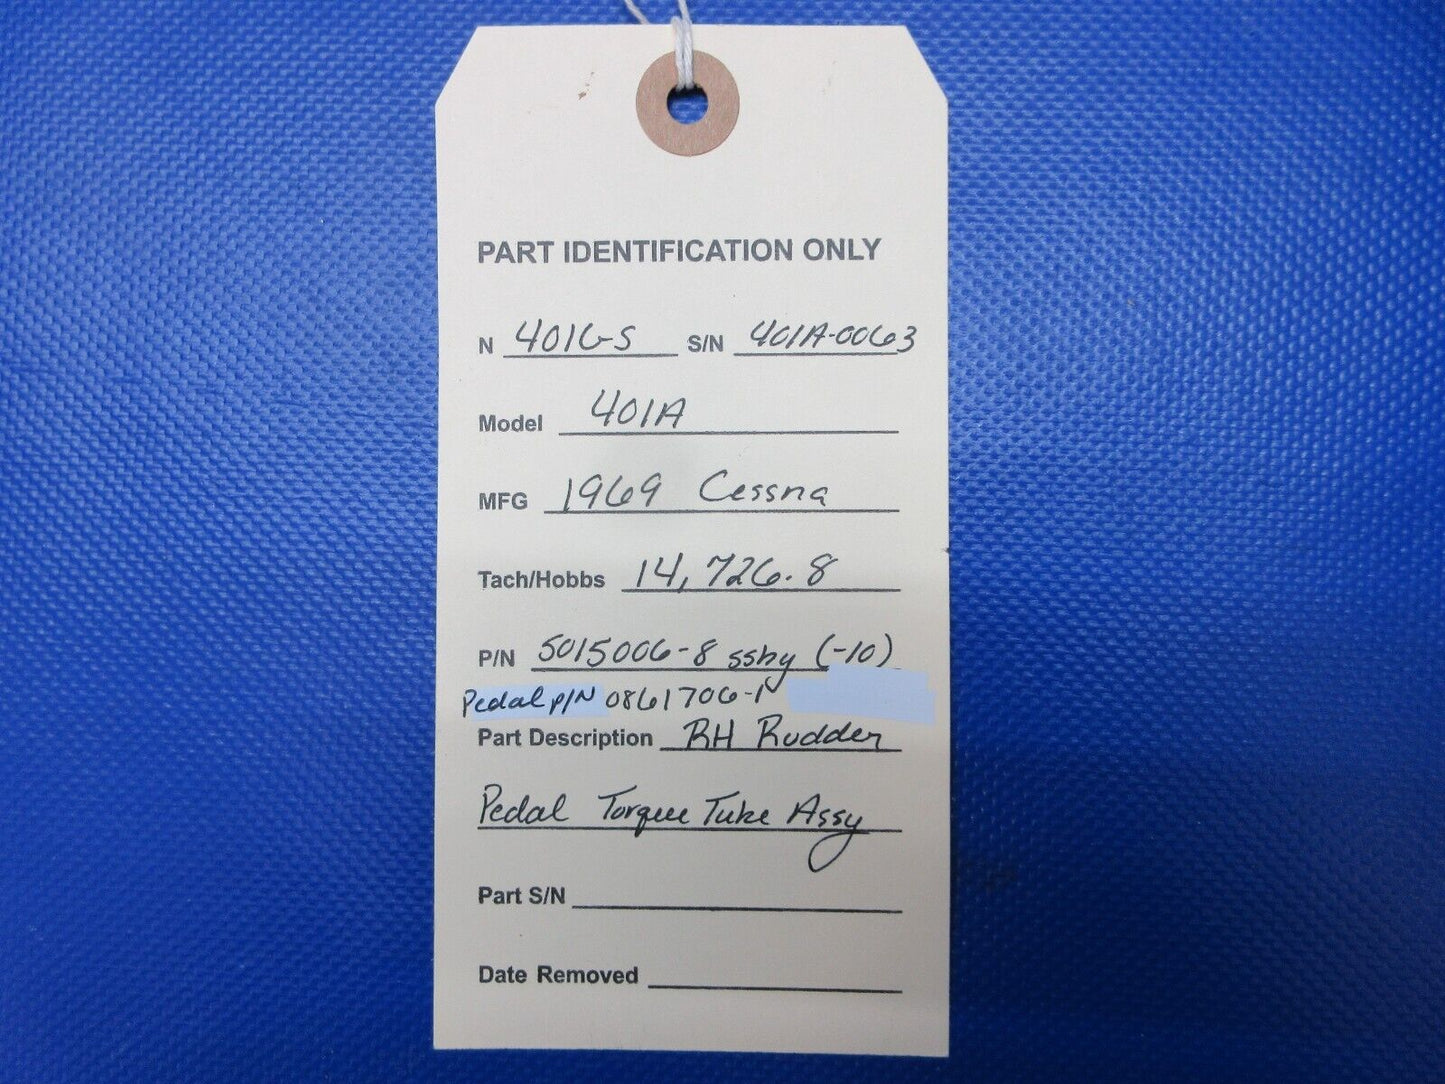 PART IDENTIFICATION ONLY
N 401G-S S/N 401A-0063
Model 401A
MFG 1969 Cessna
Tach/Hobbs 14,726.8
P/N 5015006-8 ssby (-10)
Pedal P/N 0861706-1
Part Description RH Rudder
Pedal Torque Tube Assy
Part S/N
Date Removed